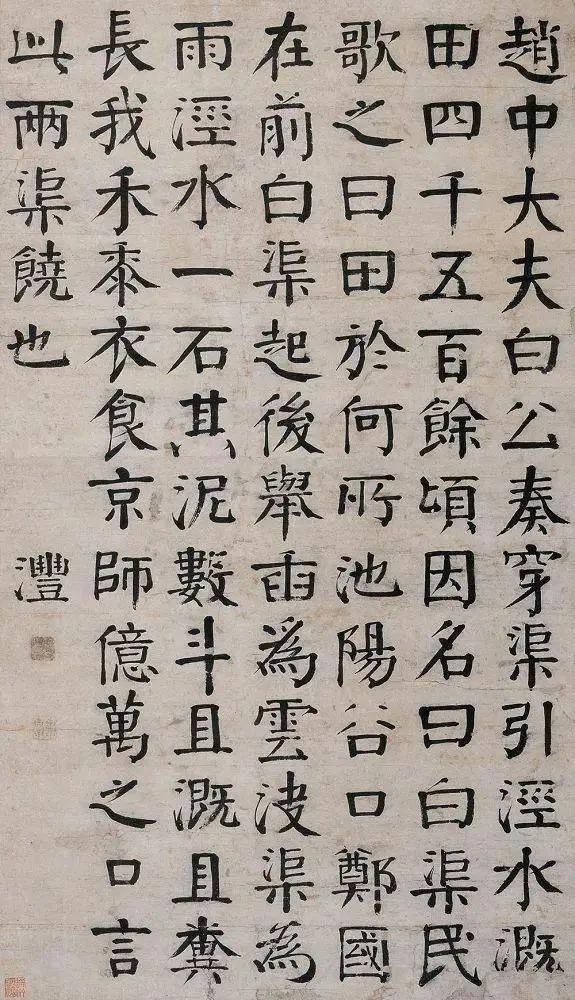 趙中大夫白公奏穿渠引涇水溉
田四千五百餘頃因名曰白渠民
歌之曰田於何所池陽谷口鄭國
在前白渠起後舉臿為雲決渠為
雨涇水一石其泥數斗且溉且糞
長我禾黍衣食京師億萬之口言
此兩渠饒也
灃